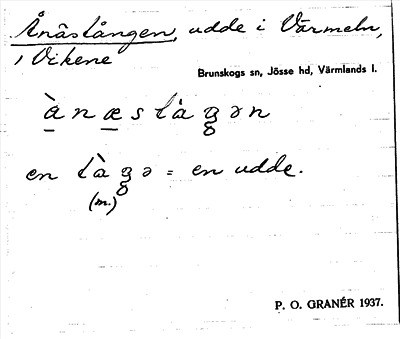 Ånästången, udde i Värmeln,
i Vikene
Brunskogs sn, Jösse hd, Värmlands l.
en = en udde.
(m.)
P. O. GRANÉR 1937.